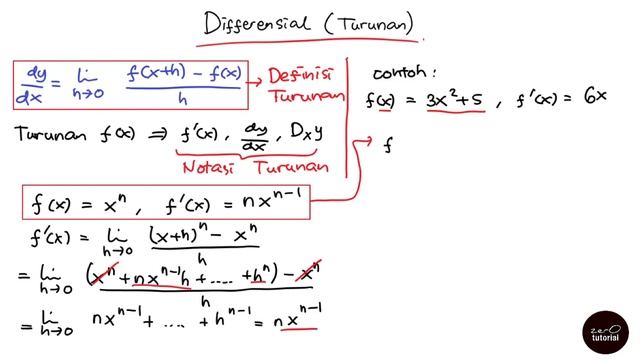 Differensial (Turunan)
dy/dx = lim h→0 f(x+h) - f(x) / h → Definisi Turunan
Turunan f(x) ⇒ f'(x), dy/dx, Dxy
Notasi Turunan
f(x) = xⁿ, f'(x) = nxⁿ⁻¹
f'(x) = lim h→0 (x+h)ⁿ - xⁿ / h
= lim h→0 (xⁿ + nxⁿ⁻¹h + ..... + hⁿ) - xⁿ / h
= lim h→0 nxⁿ⁻¹ + ..... + hⁿ⁻¹ = nxⁿ⁻¹
contoh :
f(x) = 3x²+5 , f'(x) = 6x
f
zero
tutorial